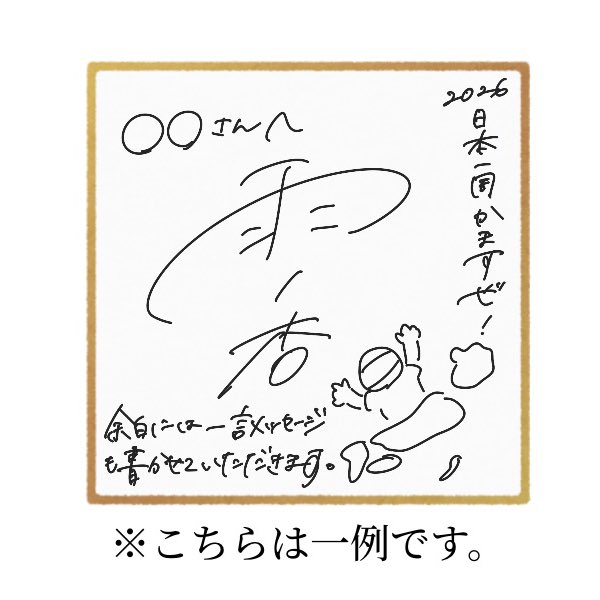 ○○さんへ
2026
日本一周かますぜ!
余白には一言メッセージ
も書かせていただきます。
※こちらは一例です。